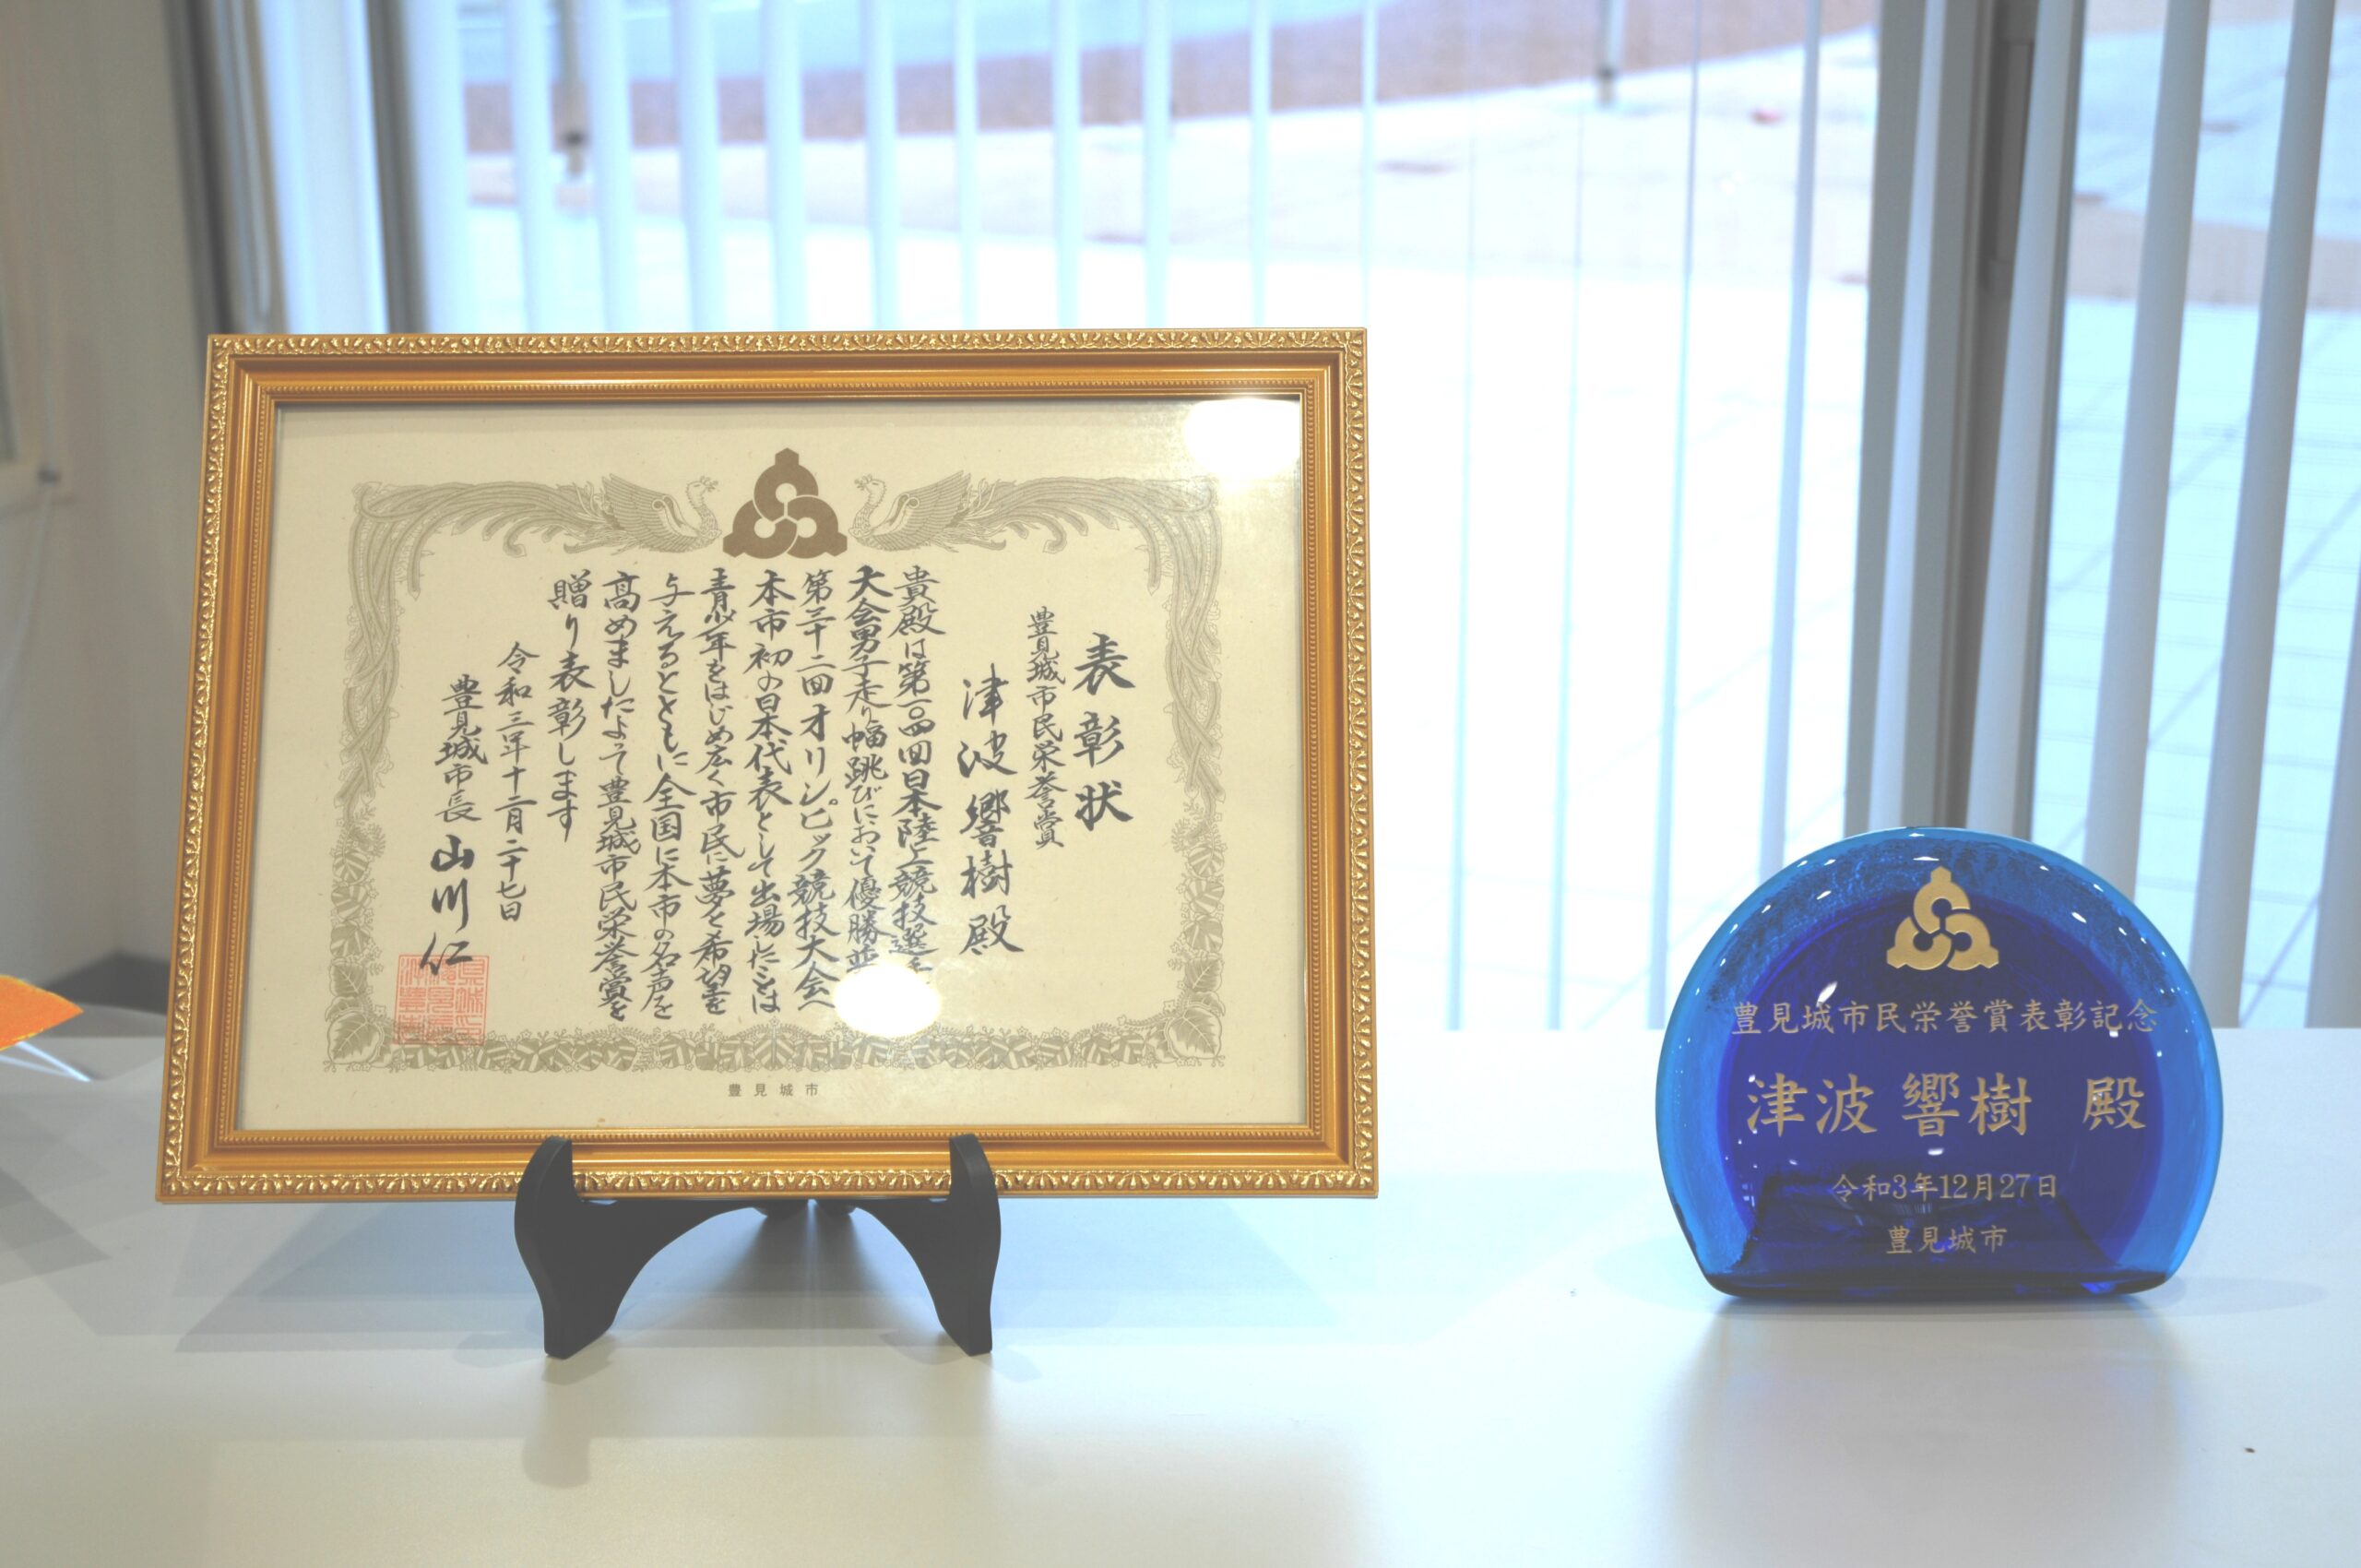 表彰状
豊見城市民栄誉賞
津波響樹殿
貴殿は第一〇四回日本陸上競技選手
大会男子走り幅跳びにおいて優勝並
第三十二回オリンピック競技大会へ
本市初の日本代表として出場したことは
青少年をはじめ広く市民に夢と希望を
与えるとともに全国に本市の名声を
高めましたよって豊見城市民栄誉賞を
贈り表彰します
令和三年十二月二十七日
豊見城市長 山川仁
豊見城市
豊見城市民栄誉賞表彰記念
津波 響樹 殿
令和3年12月27日
豊見城市